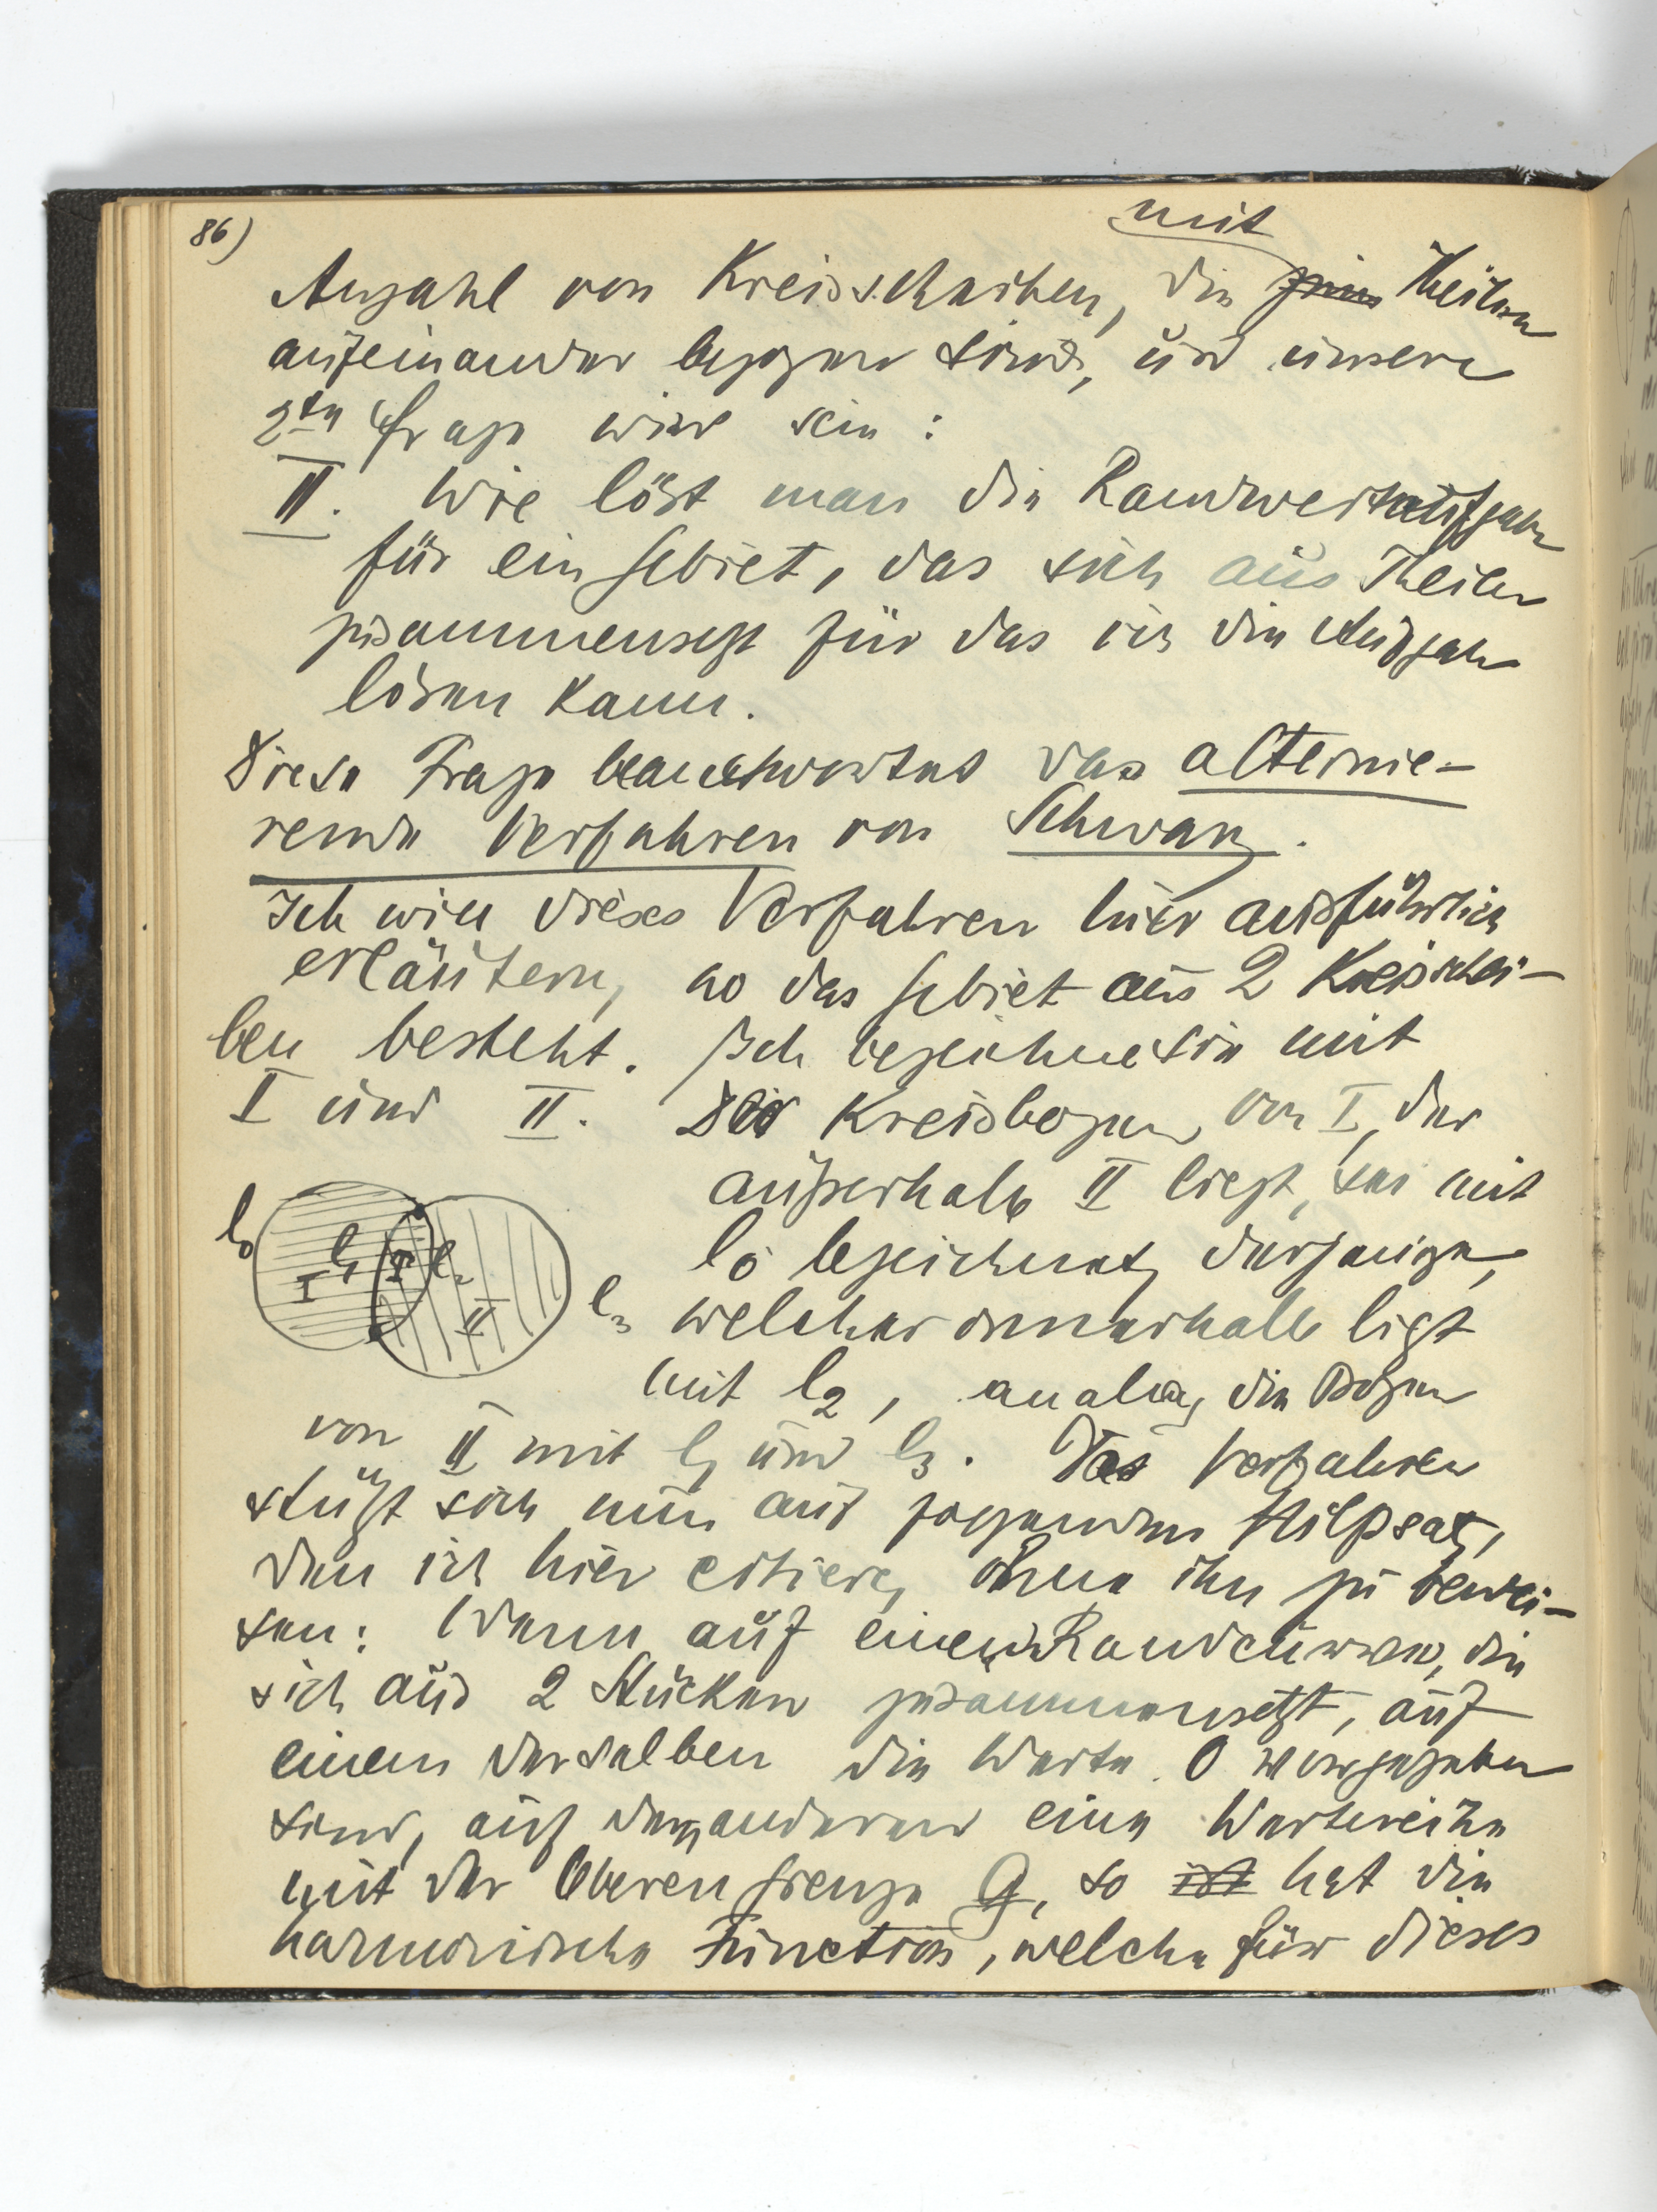 86)
mit
Anzahl von Kreisscheiben, die Theilen
aufeinander bezogen sind, und unsere
2te Frage wird sein:
II. Wie löst man die Randwertaufgabe
für ein Gebiet, das sich aus Theilen
zusammensetzt für das ich die Aufgabe
lösen kann.
Diese Frage beantwortet das alternie-
rende Verfahren von Schwarz.
Ich will dieses Verfahren hier ausführlich
erläutern, wo das Gebiet aus 2 Kreisschei-
ben besteht. Ich bezeichne sie mit
I und II. Der Kreisbogen von I, der
außerhalb II liegt, sei mit
l0 bezeichnet, derjenige,
welcher innerhalb liegt
mit l2, analog die Bogen
l0 l1 I l2 II l3
von II mit l1 und l3. Das Verfahren
stützt sich nun auf folgenden Hilfsatz,
den ich hier citiere, ohne ihn zu bewei-
sen: Wenn auf einer Randcurve, die
sich aus 2 Stücken zusammensetzt, auf
einem derselben die Werte 0 vorgegeben
sind, auf dem anderen eine Wertreihe
mit der oberen Grenze G, so ist hat die
harmonische Function, welche für dieses